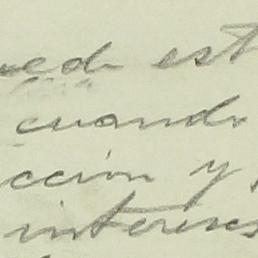 uede est
cuando
cción y
interes